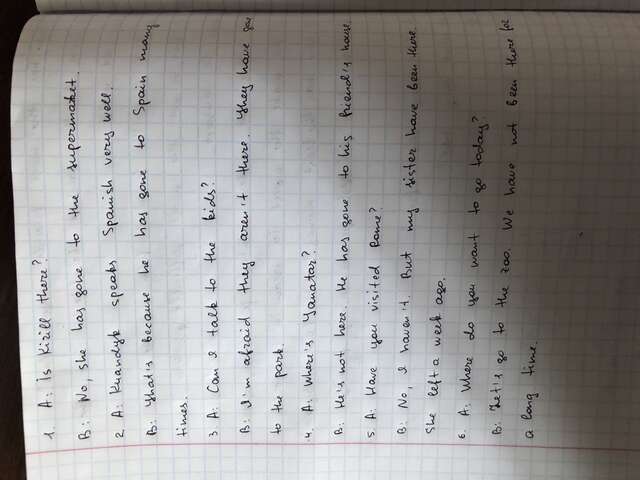 1. A: Is Kirill there?
B: No, she has gone to the supermarket.
2. A: Khandyk speaks Spanish very well.
B: That's because he has gone to Spain many
times.
3 A: Can I talk to the kids?
B: I'm afraid they aren't there. They have
to the park.
4. A: Where's Yanatar?
B: He's not here. He has gone to his friend's house.
5. A: Have you visited Rome?
B: No, I haven't. But my sister have been there.
She left a week ago.
6. A: Where do you want to go today?
B: Let's go to the zoo. We have not been there for
a long time.